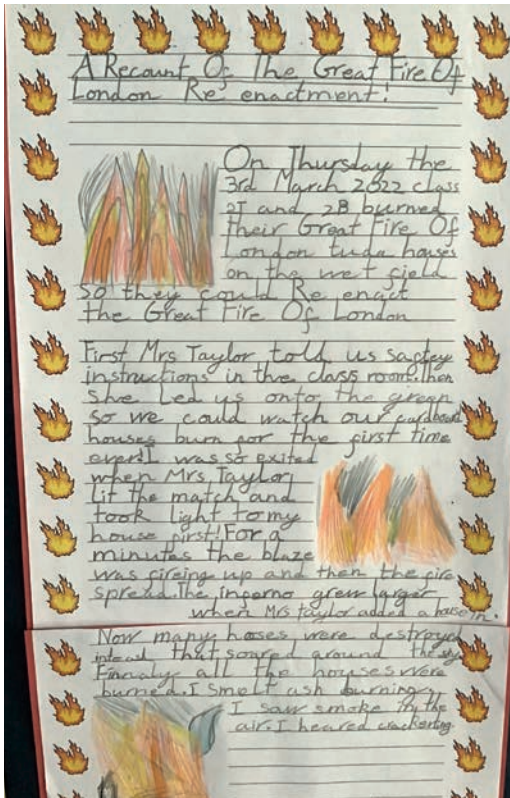 A Recount Of The Great Fire Of
London Re enactment!
On Thursday the
3rd March 2022 class
2T and 2B burned
their Great Fire Of
London tuda houses
on the wet field
so they could Re enact
the Great Fire Of London
First Mrs Taylor told us saftey
instructions in the class room. Then
she led us onto the green
so we could watch our cardboard
houses burn for the first time
ever! I was so exited
when Mrs Taylor
lit the match and
took light to my
house first! For a
minutes the blaze
was fireing up and then the fire
spread. The inferno grew larger
when Mrs taylor added a house in.
Now many hoses were destroyed
that soared around the sky
Finnaly all the houses were
burned. I smelt ash burning
I saw smoke in the
air. I heared crackerling